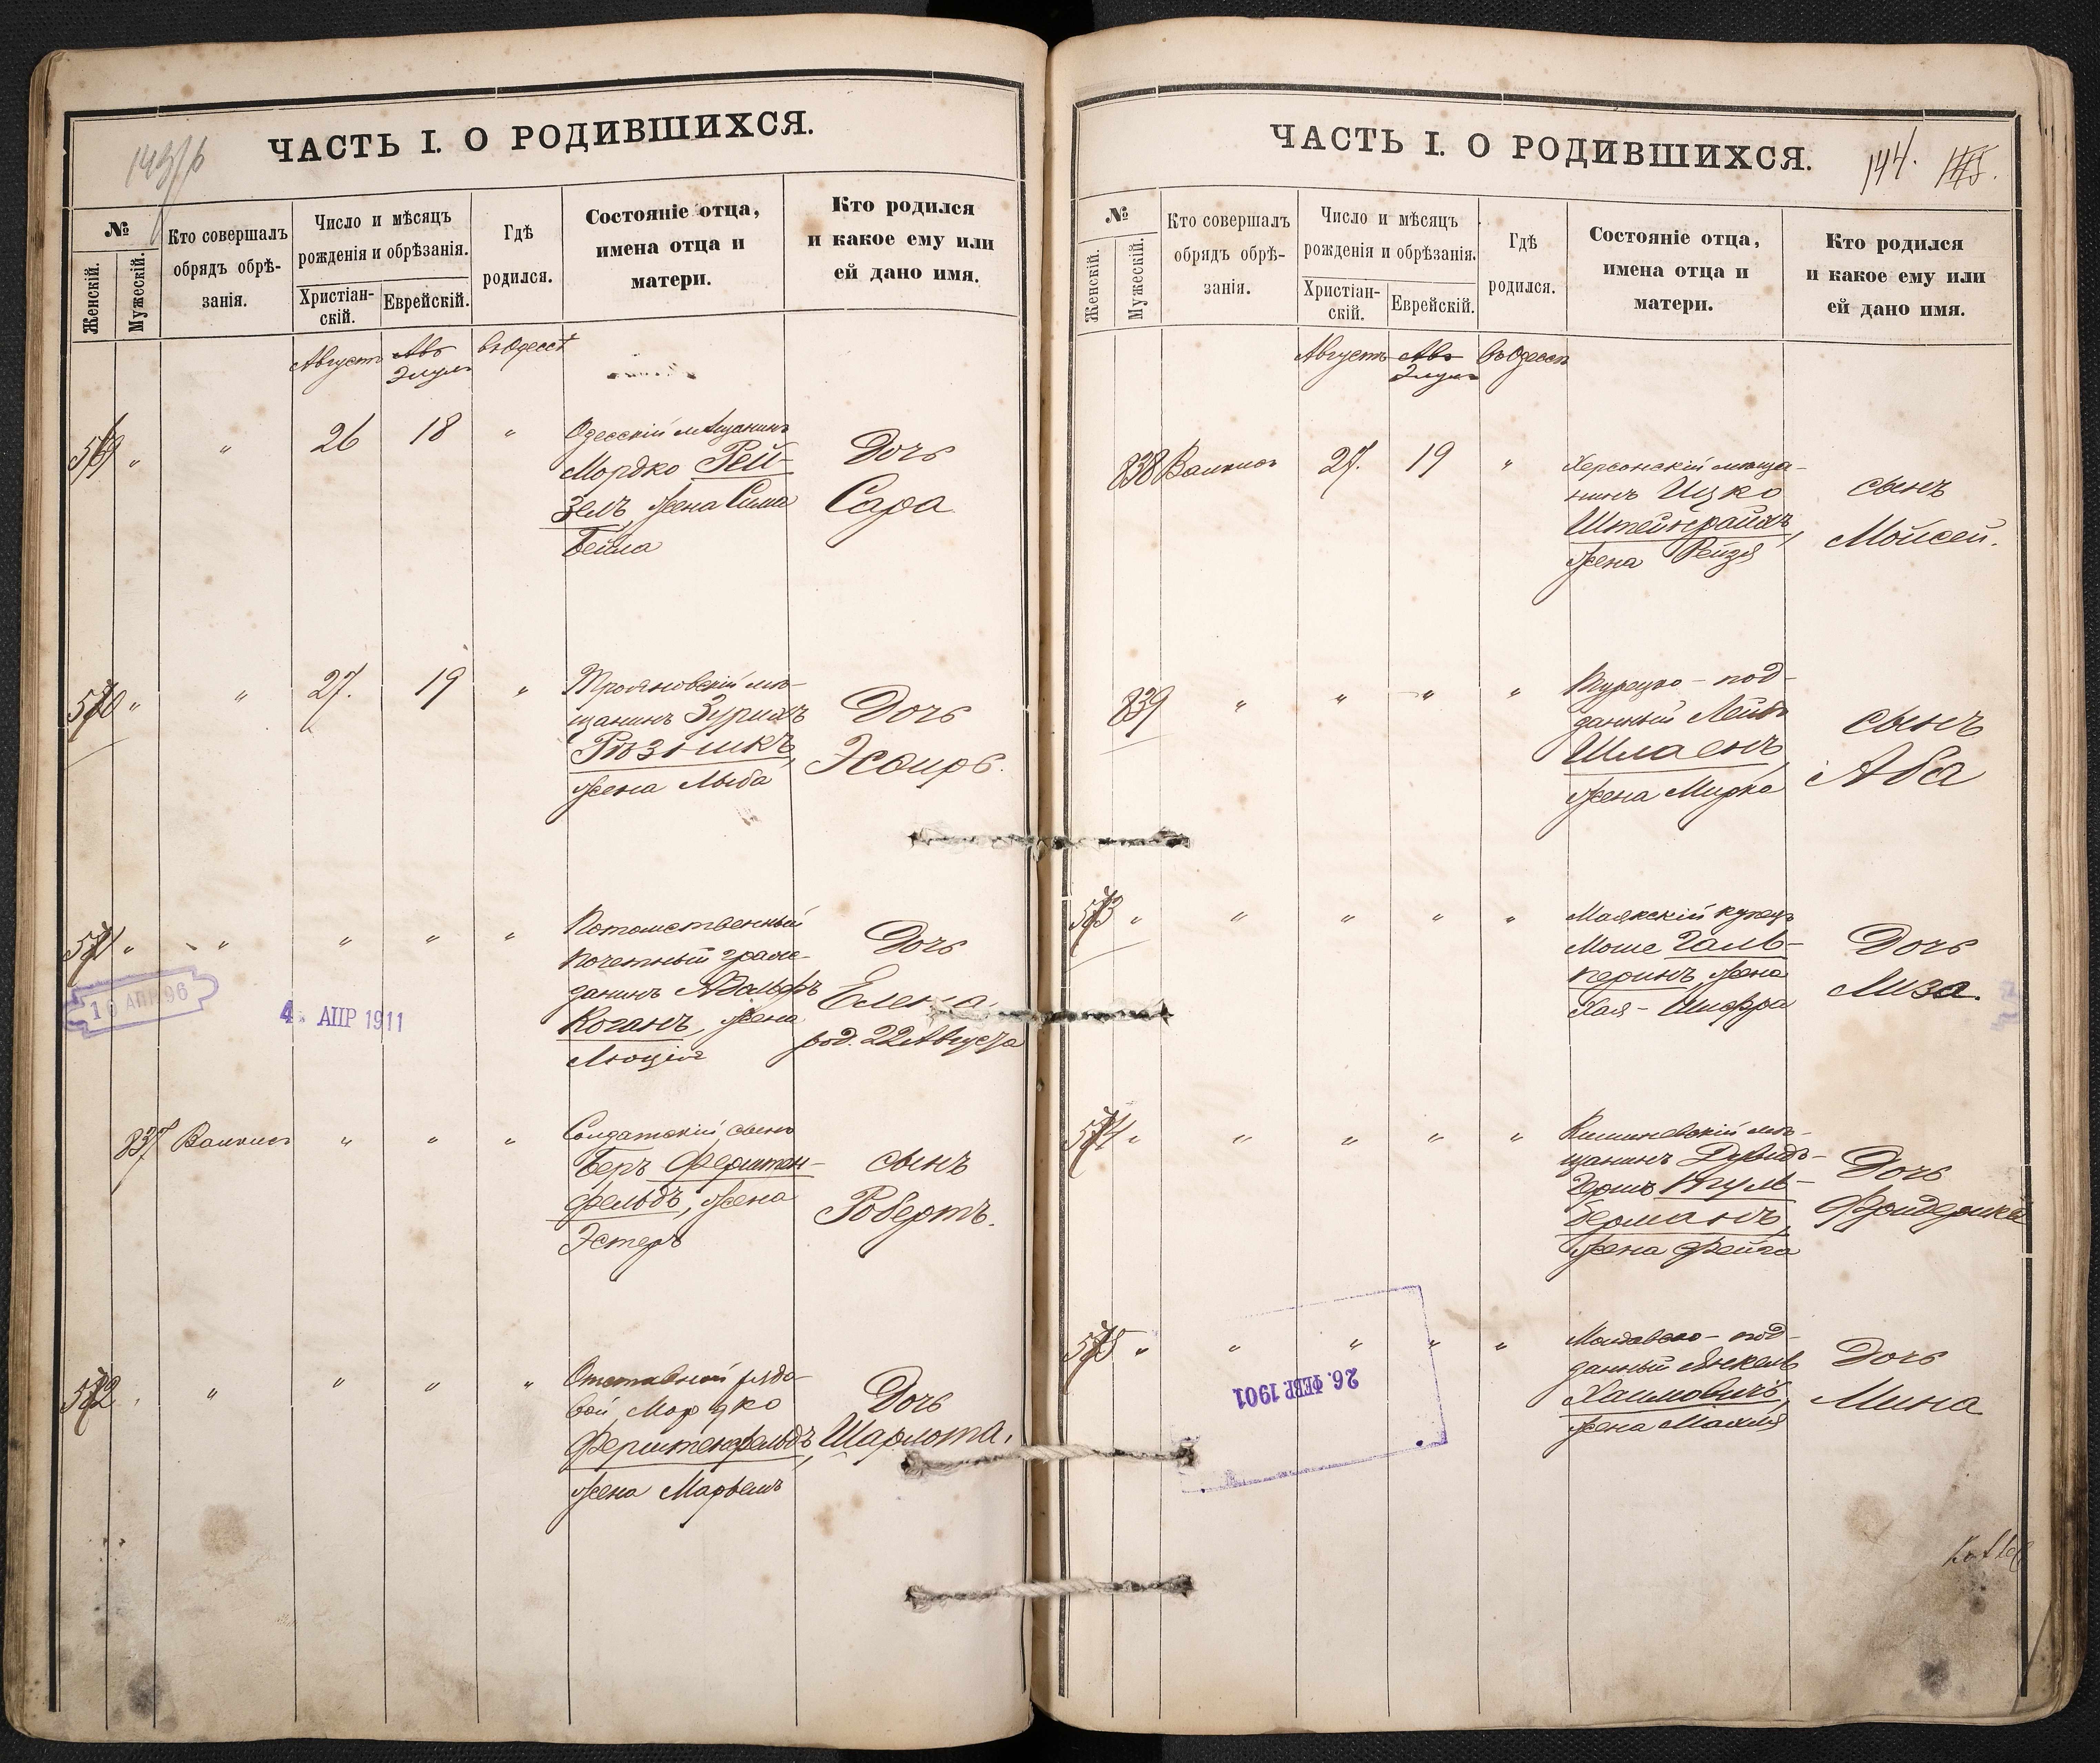 ЧАСТЬ I. О РОДИВШИХСЯ.
№
Женскій.
Мужескій.
Кто совершалъ
обрядъ обрѣ-
занія.
Число и мѣсяцъ
рожденія и обрѣзанія.
Христіан-
скій.
Еврейскій.
Гдѣ
родился.
Состояніе отца,
имена отца и
матери.
Кто родился
и какое ему или
ей дано имя.
Августъ
Авъ
Элулъ
въ Одессѣ
569 " " 26 18 "
Одесскій мѣщанинъ
Мордко Рей-
зелъ, жена Сима
Бейла
Дочь
Сара
570 " " 27. 19 "
Трояновскій мѣ-
щанинъ Зурихъ
Рѣзникъ,
жена Лыба
Дочь
Эсѳирь.
571 " " " " "
Потомственный
почетный граж-
данинъ Адольфъ
Коганъ, жена
Люція
Дочь
Елена.
род. 22 Августа
10 АПР 96
4. АПР 1911
837 " " "
Солдатскій сынъ
Беръ Ферштен-
фельдъ, жена
Эстеръ
сынъ
Робертъ.
572 " " " "
Отставной рядо-
вой Мордко
Ферштенфельдъ,
жена Марьемъ
Дочь
Шарлота.
ЧАСТЬ I. О РОДИВШИХСЯ.
144.
№
Женскій.
Мужескій.
Кто совершалъ
обрядъ обрѣ-
занія.
Число и мѣсяцъ
рожденія и обрѣзанія.
Христіан-
скій.
Еврейскій.
Гдѣ
родился.
Состояніе отца,
имена отца и
матери.
Кто родился
и какое ему или
ей дано имя.
Августъ
Авъ
Элулъ
въ Одессѣ
838 27. 19 "
Херсонскій мѣща-
нинъ Ицко
Штейнграйхъ,
жена Рейзя
сынъ
Мойсей.
839 " " " "
Турецко-под-
данный Лейбъ
Шлаенъ,
жена Мирка
сынъ
Аба
573 " " " " "
Маякскій купецъ
Моше Галь-
перинъ, жена
Хая-Шифра
Дочь
Лиза.
574 " " " " "
Кишиневскій мѣ-
щанинъ Дувидъ-
Гершъ Куль-
берманъ,
жена Фейга
Дочь
Фридерика
575 " " " " "
Молдавско-под-
данный Янкель
Хаимовичъ,
жена Махля
Дочь
Мина
26. ФЕВР. 1901